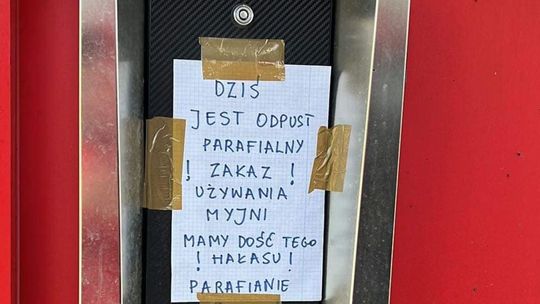 DZIŚ
JEST ODPUST
PARAFIALNY
! ZAKAZ !
UŻYWANIA
MYJNI
MAMY DOŚĆ TEGO
! HAŁASU!
PARAFIANIE